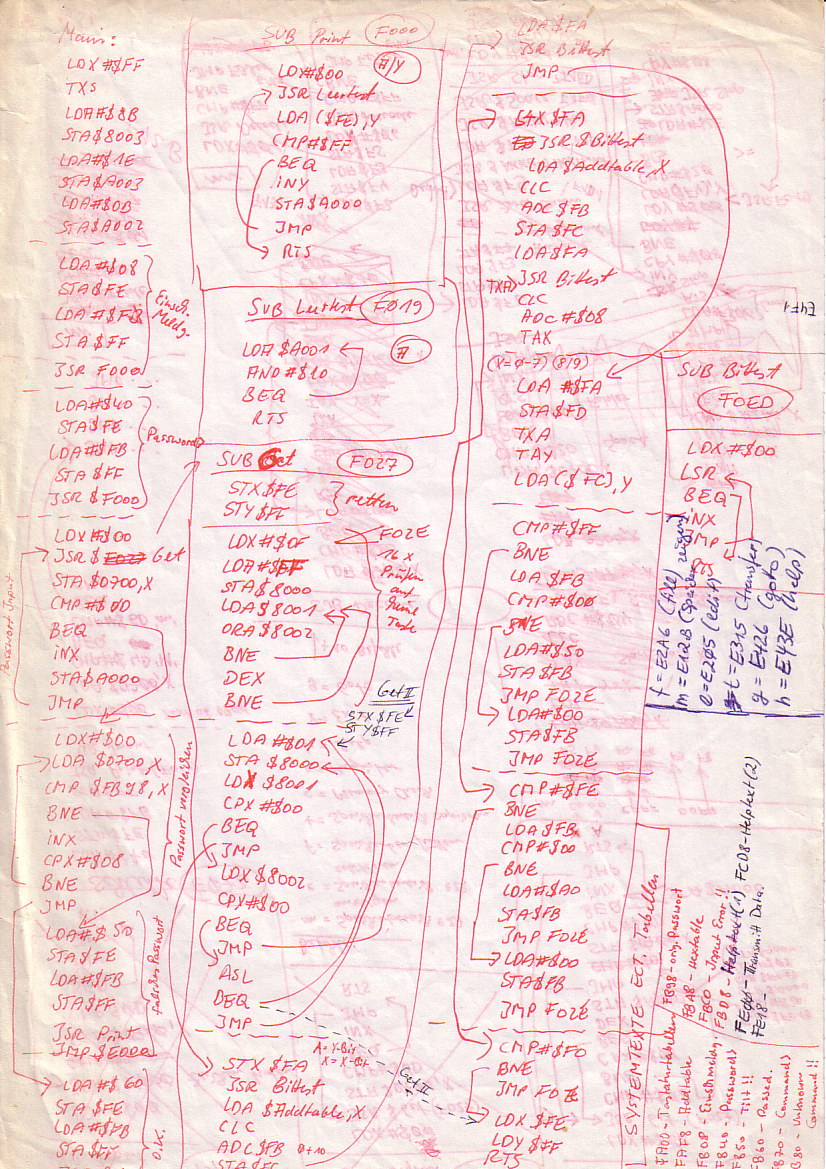 Main:
LDX #$FF
TXS
LDA#$8B
STA$8003
LDA#$1E
STA$A003
LDA#$0B
STA$A002
LDA #$08
STA$FE
LDA #$FB
STA $FF
JSR F000
Einsch.
Meldg.
LDA#$40
STA$FE
LDA#$FB
STA $FF
JSR $F000
Password>
LDX#$00
JSR$ Get
STA$0700,X
CMP#$00
BEQ
INX
STA$A000
JMP
Passwort Input
LDX#$00
LDA $0700,X
CMP $FB98,X
BNE
INX
CPX#$08
BNE
JMP
Passwort vergleichen
LDA#$50
STA$FE
LDA#$FB
STA$FF
JSR Print
JMP $E000
falsches Passwort
LDA#$60
STA $FE
LDA#$FB
STA$FF
o.k.
SUB Print F000
A/Y
LDY#$00
JSR Lurtest
LDA ($FE),Y
CMP#$FF
BEQ
INY
STA$A000
JMP
RTS
SUB Lurtest F019
A
LDA $A001
AND #$10
BEQ
RTS
SUB Get F027
STX$FE
STY$FF
retten
LDX#$0F
LDA#$FF
STA$8000
LDA$8001
ORA$8002
BNE
DEX
BNE
F02E
16x
Prüfen
auf
keine
Taste
Get II
STX$FE
STY$FF
LDA #$01
STA $8000
LDX $8001
CPX #$00
BEQ
JMP
LDX$8002
CPX#$00
BEQ
JMP
ASL
BEQ
JMP
A=Y-Bit
X=X-Bit
Get II
STX $FA
JSR Bittest
LDA $Addtable,X
CLC
ADC $FB 0+10
STA$FC
LDA$FA
JSR Bittest
JMP
STX $FA
JSR $Bittest
LDA $Addtable,X
CLC
ADC $FB
STA $FC
LDA$FA
TXA
JSR Bittest
CLC
ADC #$08
TAX
(X=0-7) (8/9)
LDA #$FA
STA$FD
TXA
TAY
LDA($FC),Y
CMP#$FF
BNE
LDA $FB
CMP#$00
BNE
LDA#$50
STA$FB
JMP F02E
LDA#$00
STA$FB
JMP F02E
CMP#$FE
BNE
LDA$FB
CMP#$00
BNE
LDA#$A0
STA$FB
JMP F02E
LDA#$00
STA$FB
JMP F02E
CMP#$F0
BNE
JMP F02E
LDX $FE
LDY $FF
RTS
E4F1
SUB Bittest
F0ED
LDX #$00
LSR
BEQ
INX
JMP
RTS
f = E2A6 (Fill)
m = E12B (Speicher zeigen)
e = E205 (edit)
t = E315 (transfer)
g = E426 (goto)
h = E43E (help)
SYSTEMTEXTE ECT. Tabellen
FA00 - Tastaturtabellen
FAF8 - Addtable
FB08 - Einschmeldg.
FB40 - Password>
FB50 - Tilt!!
FB60 - Passed.
FB70 - Command>
FB80 - Unknown Command!!
FB98 - orig. Passwort
FBA8 - Hextable
FBC0 - Input Error!!
FBD8 - Helptext(1) FCD8 - Helptext(2)
- Transmitt Data.
FE18 -